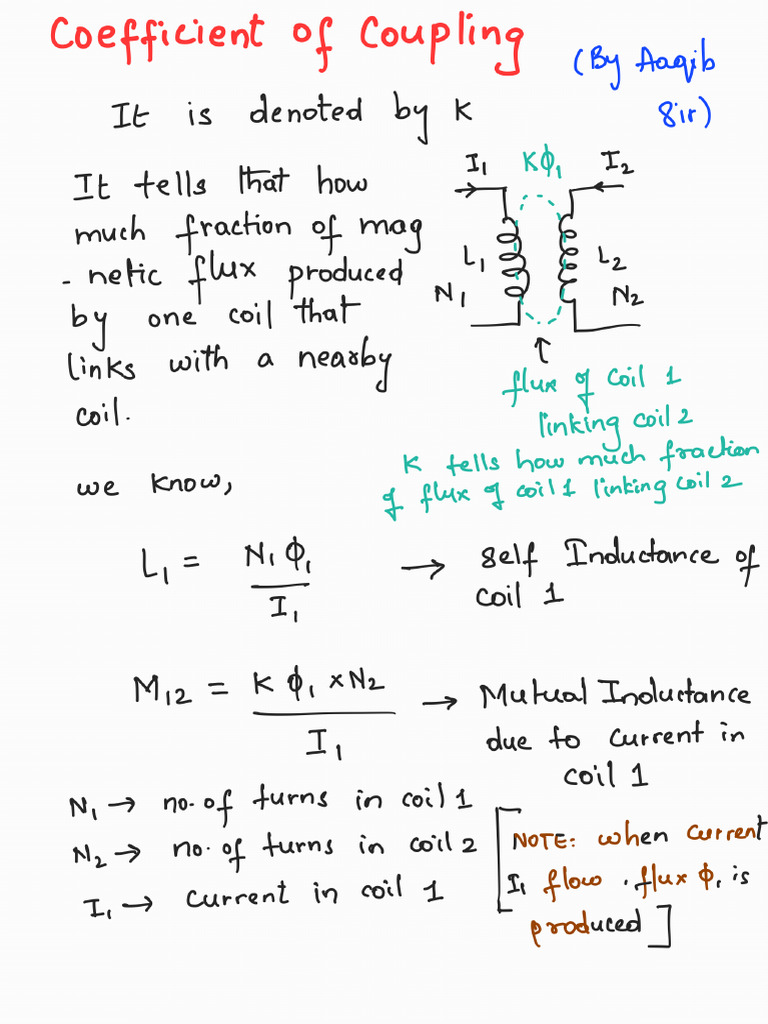 Coefficient of Coupling
(By Aaqib
Sir)
It is denoted by K
It tells that how
much fraction of mag
- netic flux produced
by one coil that
links with a nearby
coil.
I₁ Kϕ₁ I₂
L₁ L₂
N₁ N₂
↑
flux of coil 1
linking coil 2
K tells how much fraction
of flux of coil 1 linking coil 2
we know,
L₁ = N₁ϕ₁ / I₁ → Self Inductance of
coil 1
M₁₂ = K ϕ₁ × N₂ / I₁ → Mutual Inductance
due to current in
coil 1
N₁ → no. of turns in coil 1
N₂ → no. of turns in coil 2
I₁ → current in coil 1
[NOTE: when current
I₁ flow, flux ϕ₁ is
produced]